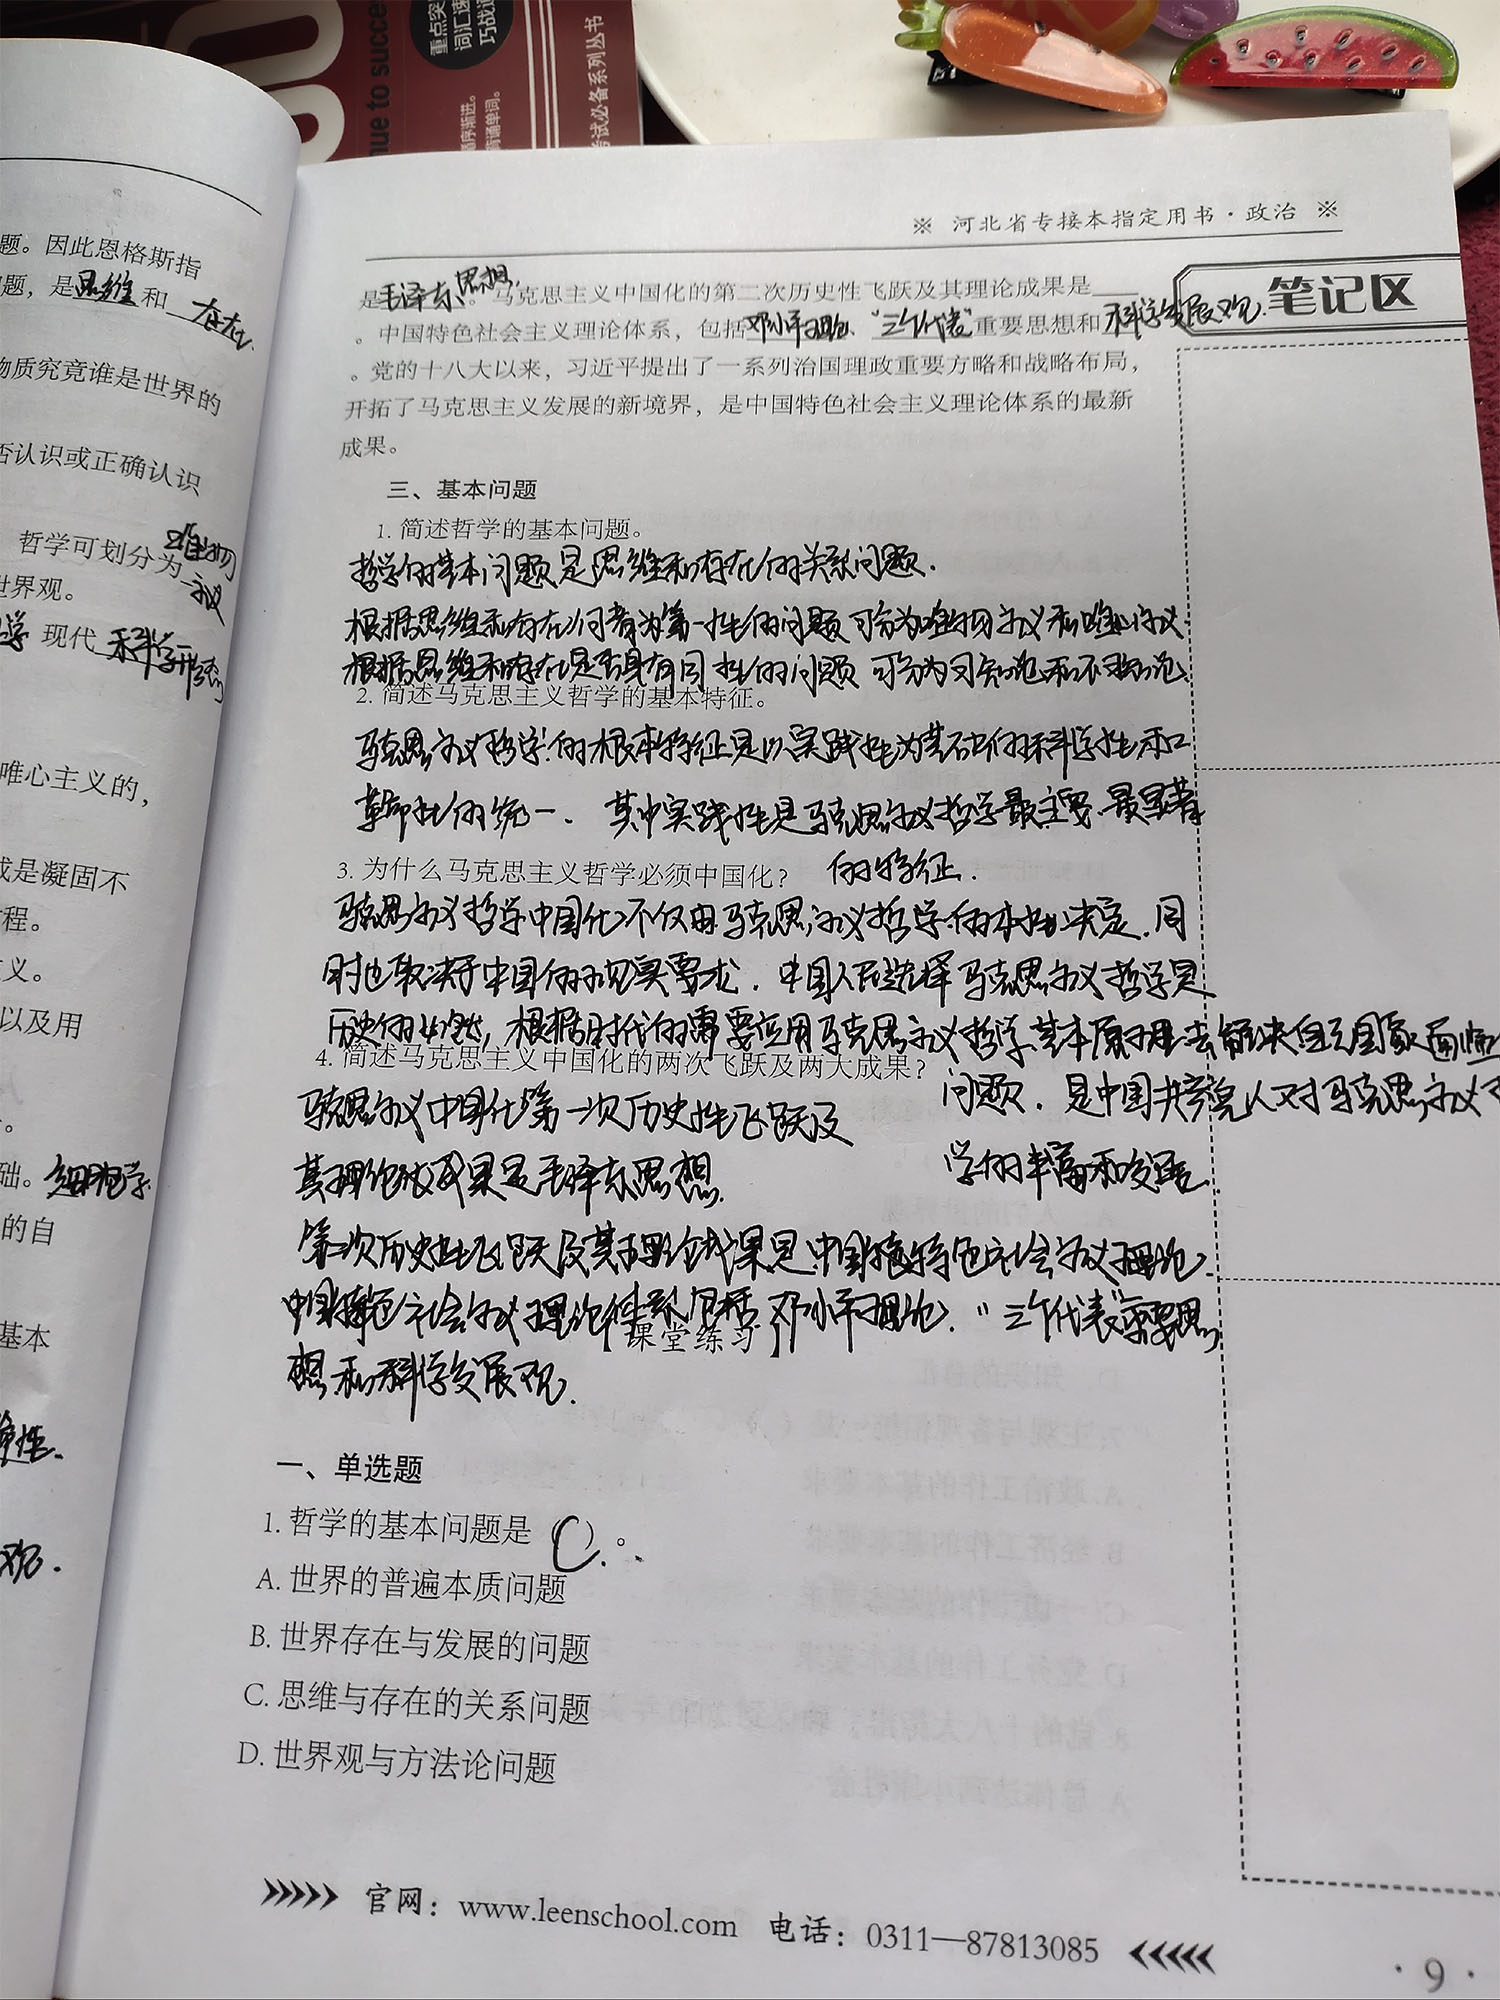 重点突
词汇速
巧战
nue to succe
循序渐进。
背诵单词。
考试必备系列丛书
题。因此恩格斯指
问题，是思维和存在
物质究竟谁是世界的
否认识或正确认识
哲学可划分为唯物主义
世界观。
学 现代 科学形态
唯心主义的，
或是凝固不
程。
主义。
以及用
础。细胞学
的自
基本
观.
※ 河北省专接本指定用书·政治 ※
笔记区
是毛泽东思想。马克思主义中国化的第二次历史性飞跃及其理论成果是
。中国特色社会主义理论体系，包括邓小平理论、“三个代表”重要思想和科学发展观
。党的十八大以来，习近平提出了一系列治国理政重要方略和战略布局，
开拓了马克思主义发展的新境界，是中国特色社会主义理论体系的最新
成果。
三、基本问题
1. 简述哲学的基本问题。
哲学的基本问题是思维和存在的关系问题.
根据思维和存在何者为第一性的问题 可分为唯物主义和唯心主义.
根据思维和存在是否具有同一性的问题 可分为可知论和不可知论.
2. 简述马克思主义哲学的基本特征。
马克思主义哲学的根本特征是以实践性为基础的科学性和
革命性的统一. 其中实践性是马克思主义哲学最主要.最显著
的特征.
3. 为什么马克思主义哲学必须中国化？
马克思主义哲学中国化不仅由马克思主义哲学的本性决定.同
时也取决于中国的现实要求. 中国人民选择马克思主义哲学是
历史的必然, 根据时代的需要应用马克思主义哲学基本原理去解决自己国家面临
问题. 是中国共产党人对马克思主义
学的丰富和发展.
4. 简述马克思主义中国化的两次飞跃及两大成果？
马克思主义中国化第一次历史性飞跃及
其理论成果是毛泽东思想.
第二次历史性飞跃及其理论成果是中国特色社会主义理论.
中国特色社会主义理论体系包括邓小平理论. “三个代表”重要思
想和科学发展观.
【课堂练习】
一、单选题
1. 哲学的基本问题是（C）。
A. 世界的普遍本质问题
B. 世界存在与发展的问题
C. 思维与存在的关系问题
D. 世界观与方法论问题
官网：www.leenschool.com 电话：0311—87813085
·9·